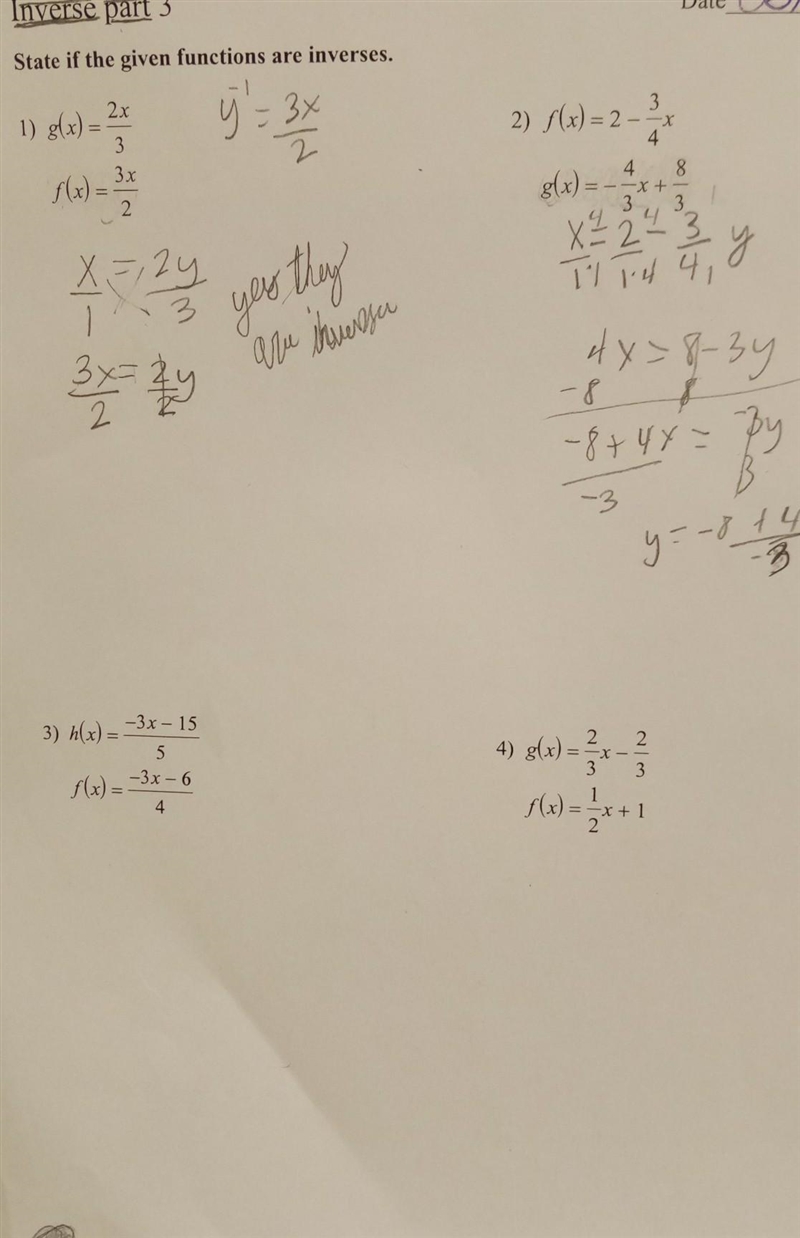 Inverse part 3
Date
State if the given functions are inverses.
1) g(x) = 2x/3
f(x) = 3x/2
y⁻¹ = 3x/2
x/1 = 2y/3
3x/2 = 2y/2
yes they
are inverses
2) f(x) = 2 − 3/4 x
g(x) = −4/3 x + 8/3
4x = 8 − 3y
−8
−8 + 4x = −3y
−3
y = −8 + 4
−3
3) h(x) = −3x − 15/5
f(x) = −3x − 6/4
4) g(x) = 2/3 x − 2/3
f(x) = 1/2 x + 1